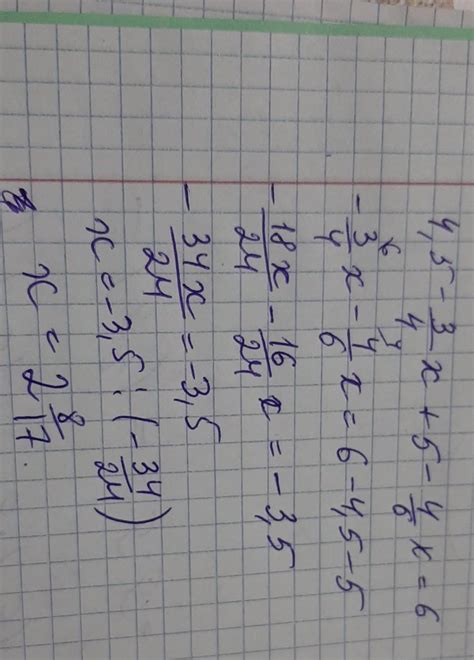 4,5 - 3/4 x + 5 - 4/6 x = 6
- 3/4 x - 4/6 x = 6 - 4,5 - 5
- 18x/24 - 16/24 x = -3,5
- 34x/24 = -3,5
x = -3,5 : (- 34/24)
x = 2 8/17.